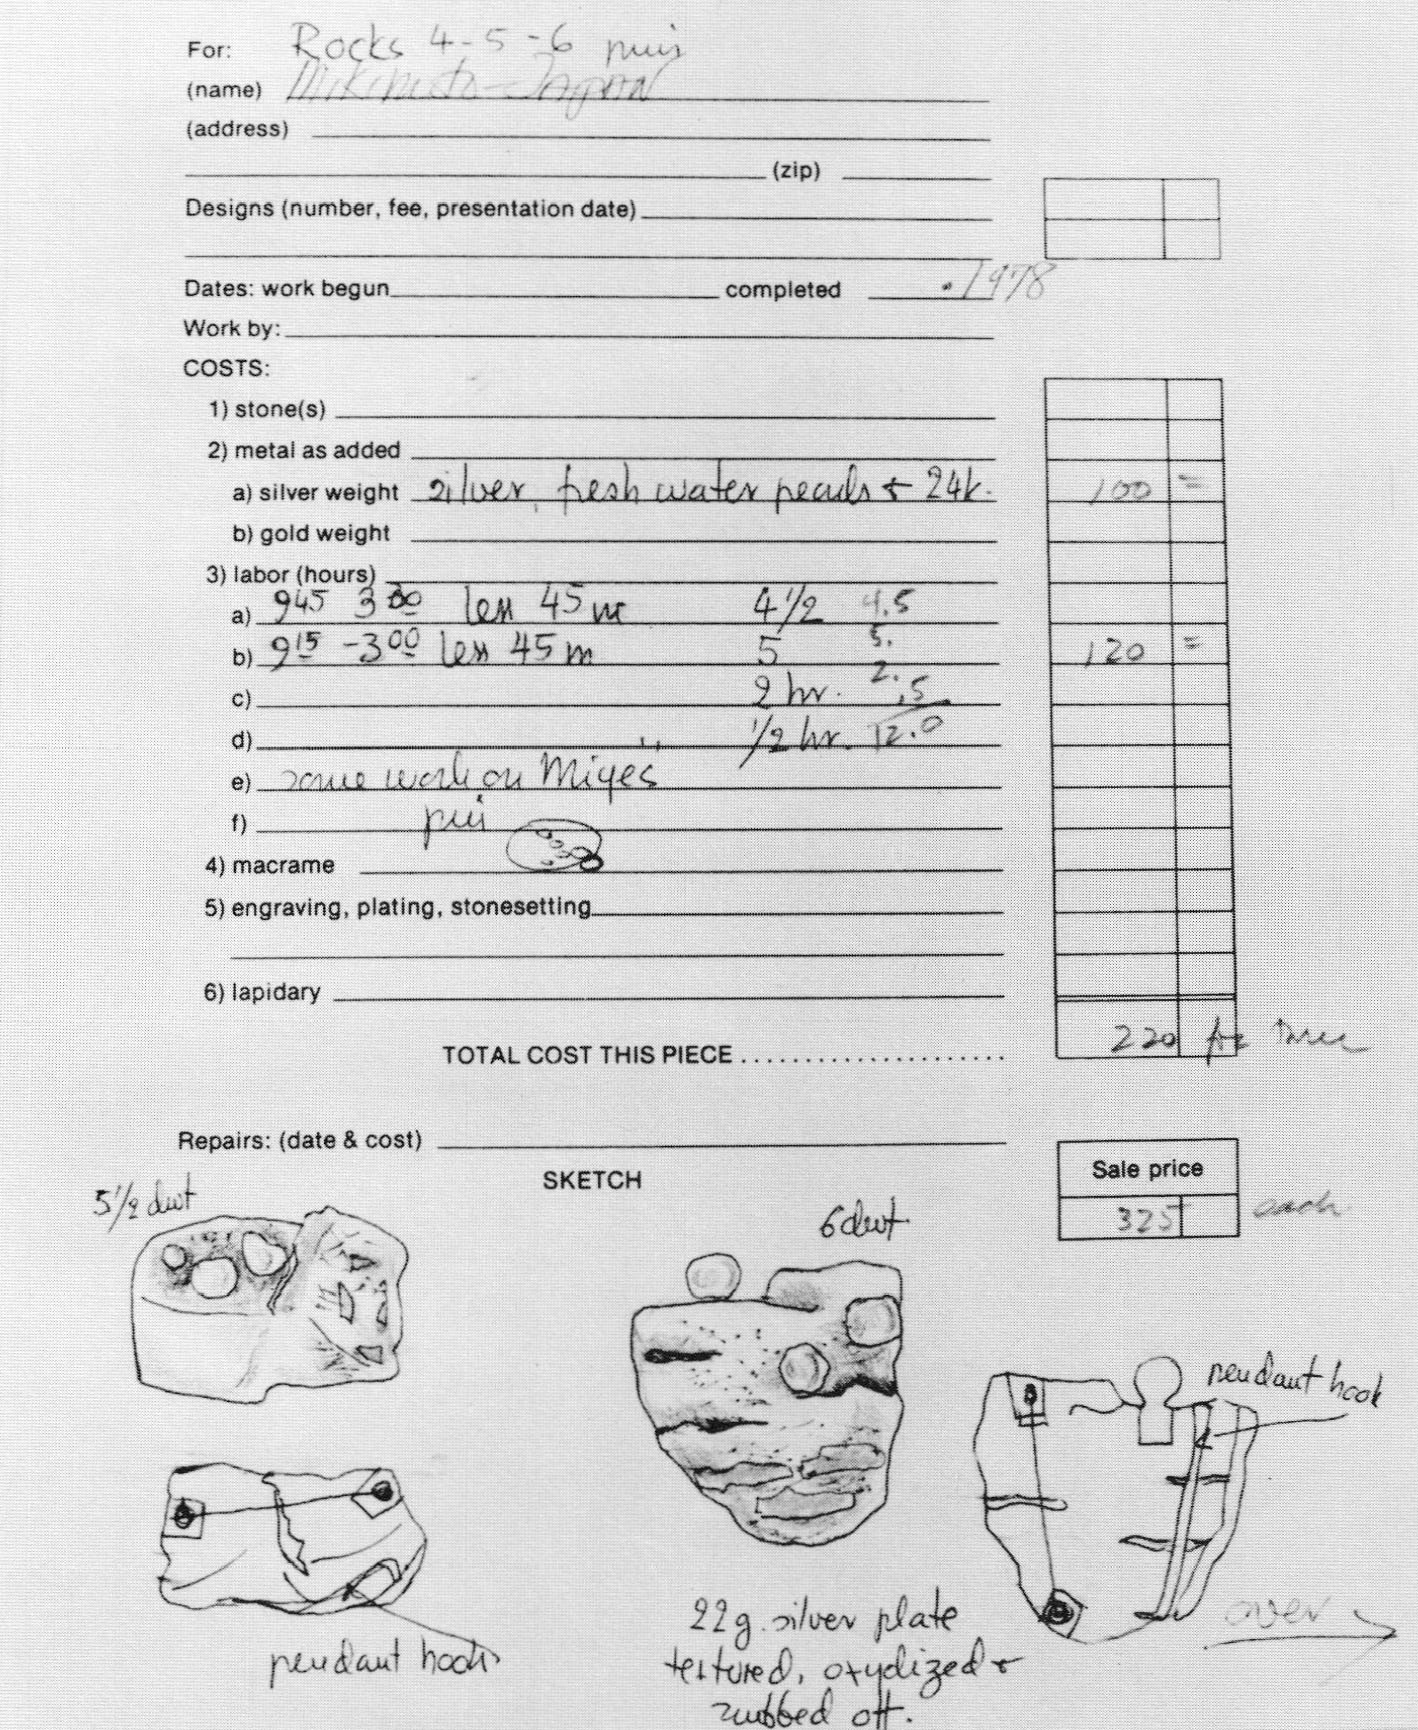 For: Rocks 4-5-6 pins
(name) Mikimoto-Japan
(address)
(zip)
Designs (number, fee, presentation date)
Dates: work begun completed .1978
Work by:
COSTS:
1) stone(s)
2) metal as added
a) silver weight silver, fresh water pearls + 24k. 100 =
b) gold weight
3) labor (hours)
a) 945 3 00 less 45 m 4 1/2 4.5
b) 915 -300 less 45 m 5 5. 120 =
c) 2 hr. 2.
.5
d) 1/2 hr. 12.0
e) some work on Miyes
f) pin
4) macrame
5) engraving, plating, stonesetting
6) lapidary
TOTAL COST THIS PIECE .................... 220 for three
Repairs: (date & cost)
Sale price
SKETCH
325 each
5 1/2 dwt
6 dwt.
pendant hook
pendant hook
22 g. silver plate
textured, oxydized +
rubbed off.
over